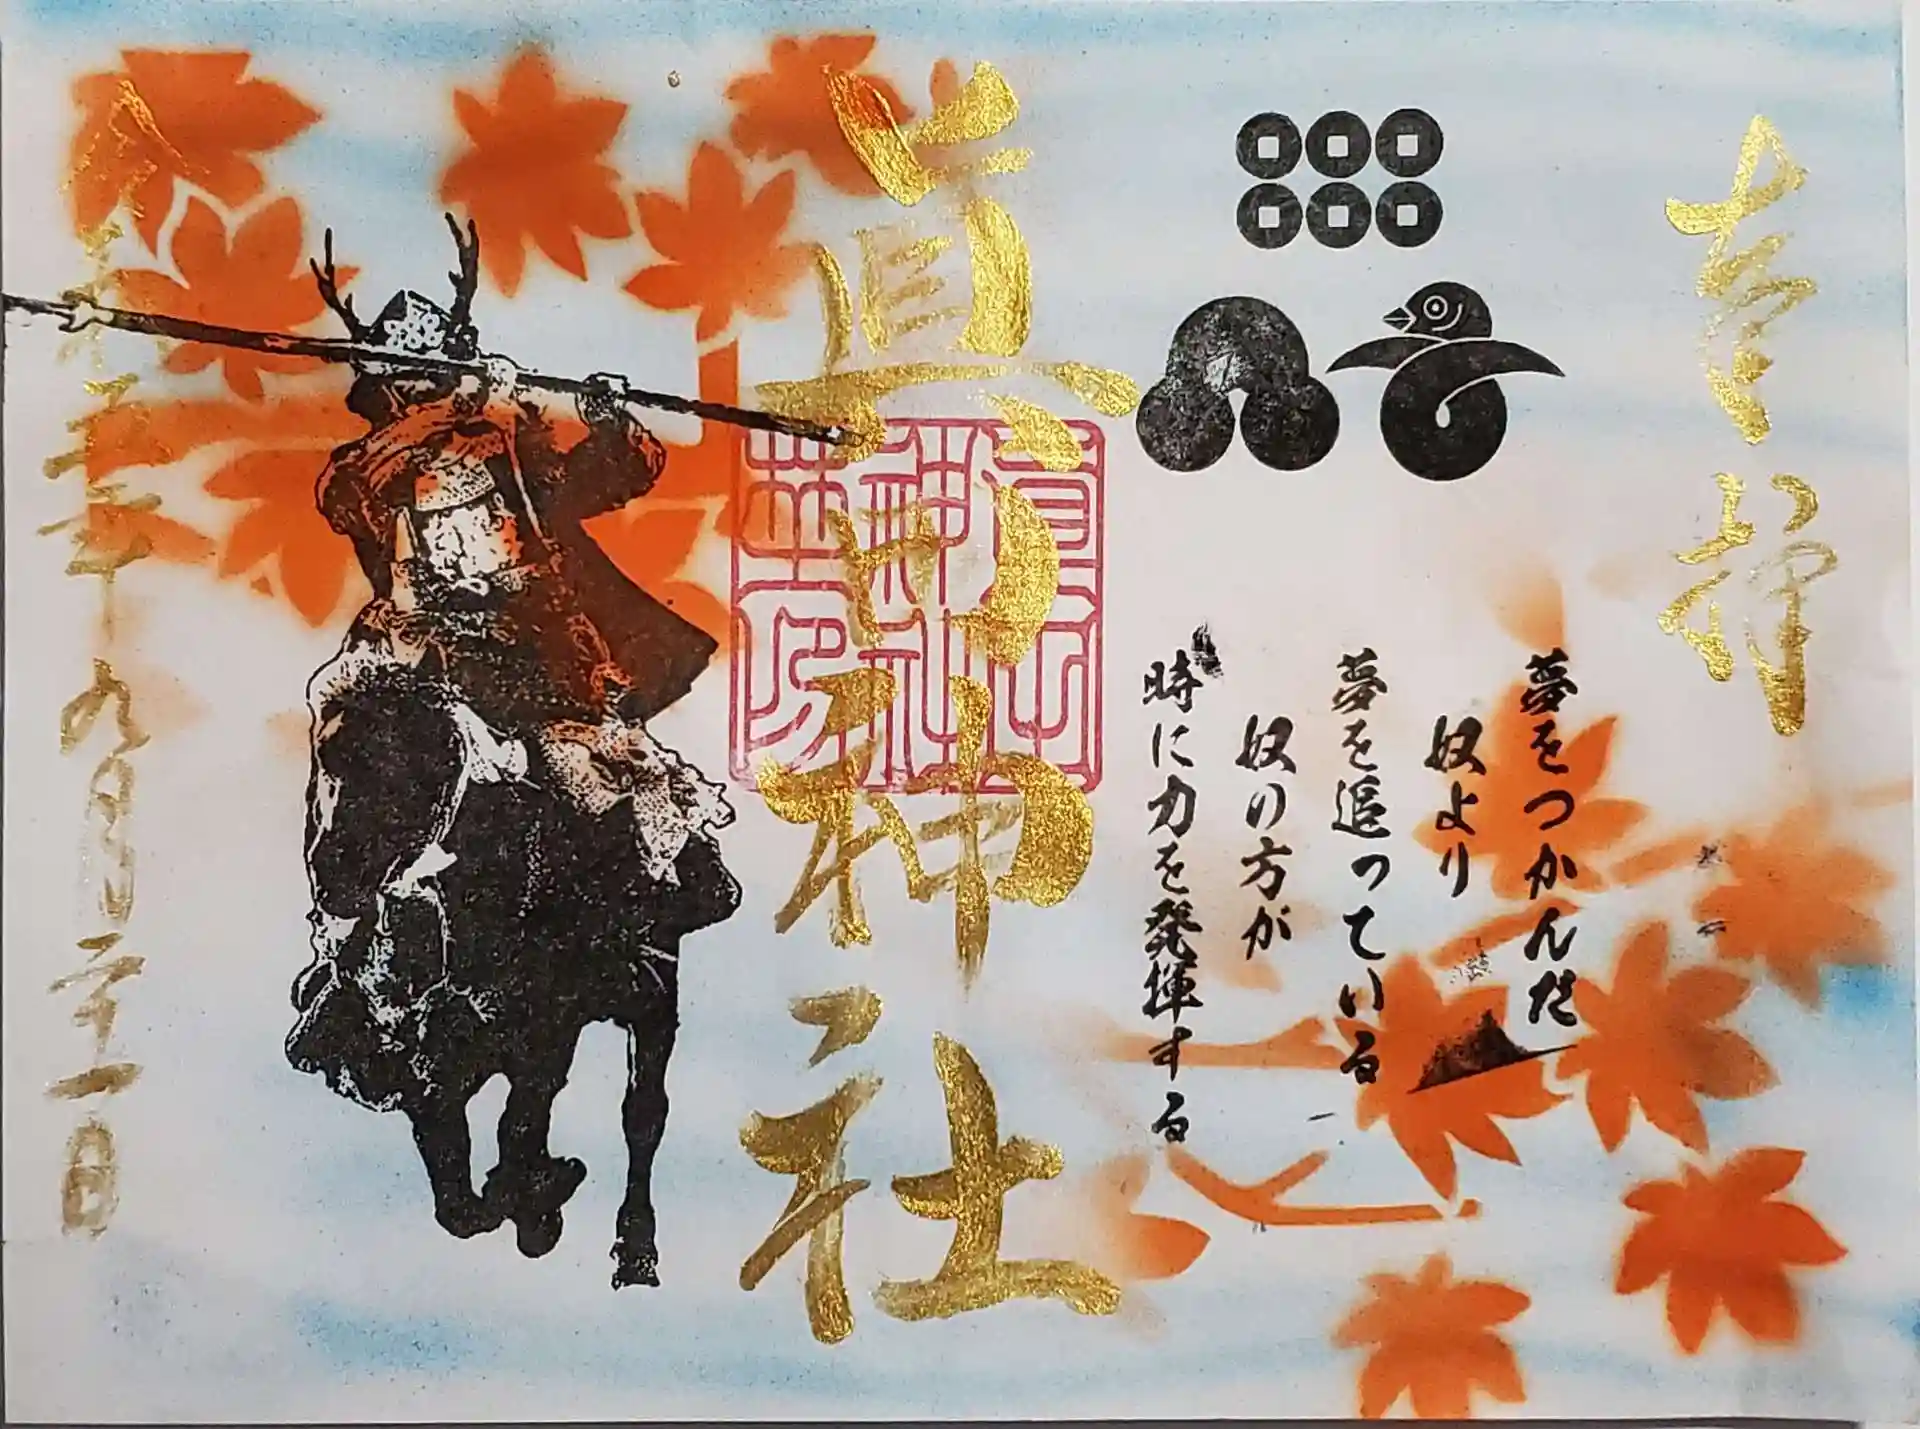 奉拝
夢をつかんだ
奴より
夢を追っている
奴の方が
時に力を発揮する
眞田神社
令和三年九月二十一日